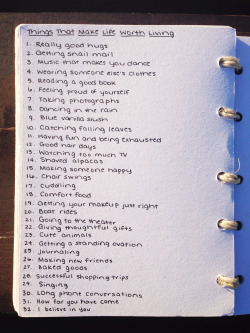 Things That Make Life Worth Living
1. Really good hugs
2. Getting snail mail
3. Music that makes you dance
4. Wearing someone else's clothes
5. Reading a good book
6. Feeling proud of yourself
7. Taking photographs
8. Dancing in the rain
9. Blue vanilla slush
10. Catching falling leaves
11. Having fun and being exhausted
12. Good hair days
13. Watching too much TV
14. Shaved alpacas
15. Making someone happy
16. Chair swings
17. Cuddling
18. Comfort food
19. Getting your makeup just right
20. Boat rides
21. Going to the theater
22. Giving thoughtful gifts
23. Cute animals
24. Getting a standing ovation
25. Journaling
26. Making new friends
27. Baked goods
28. Successful shopping trips
29. Singing
30. Long phone conversations
31. How far you have come
32. I believe in you